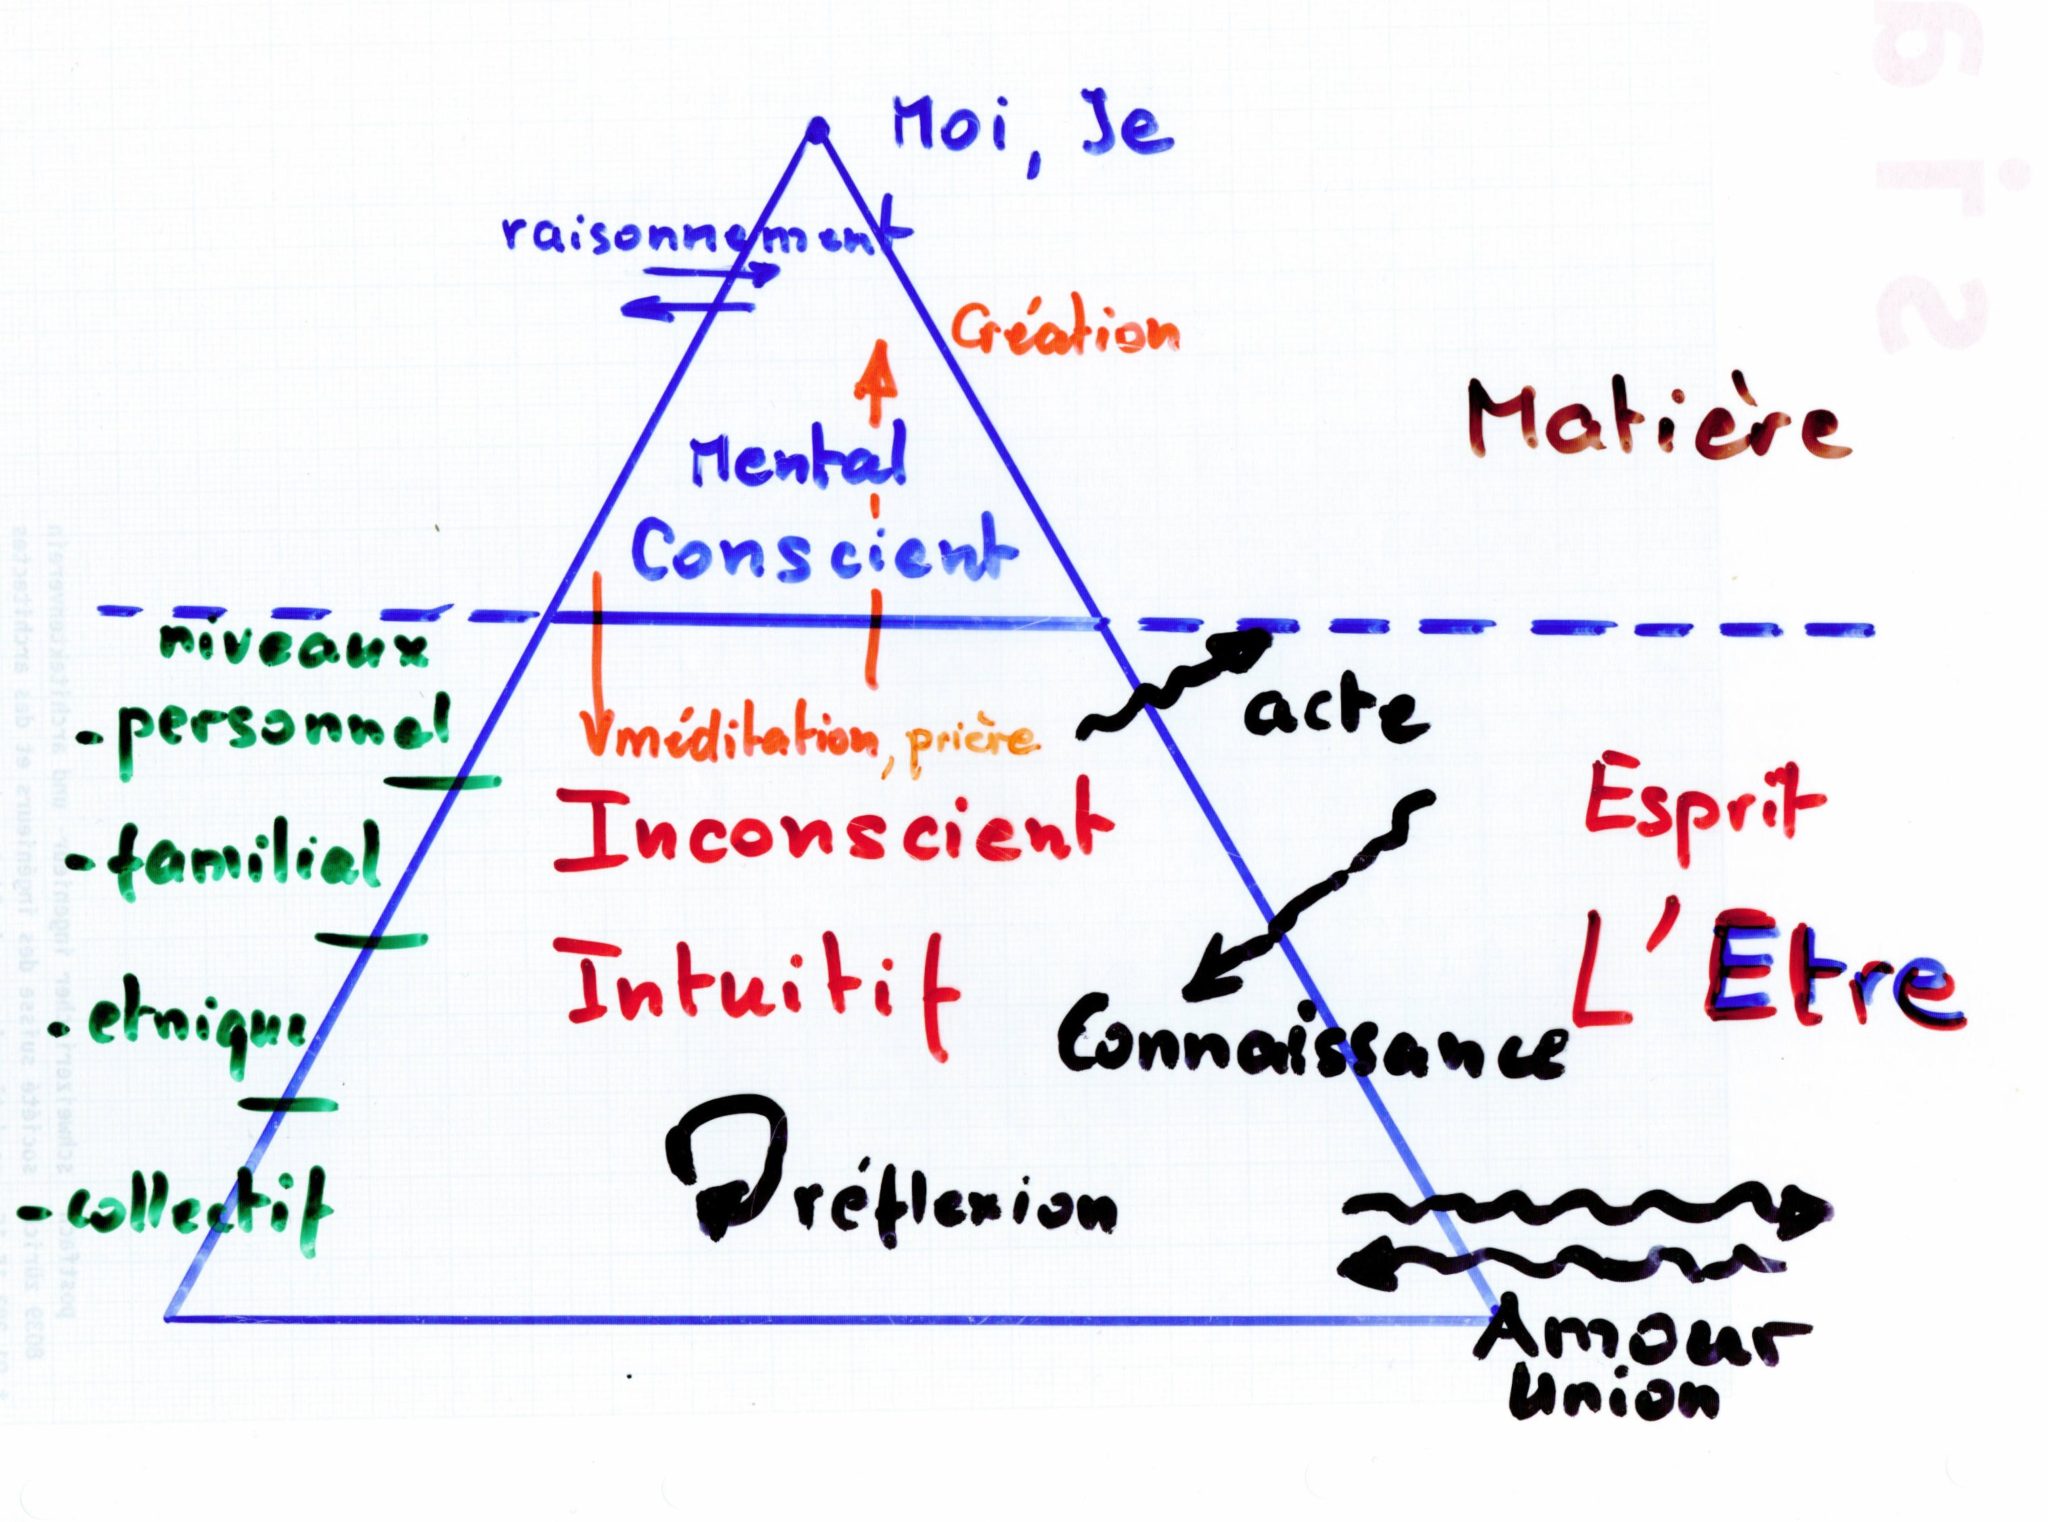 Moi, Je
raisonnement
Création
Matière
Mental
Conscient
niveaux
- personnel
- familial
- etnique
- collectif
méditation, prière
acte
Inconscient
Esprit
Intuitif
L'Etre
Connaissance
réflexion
Amour
Union
sia